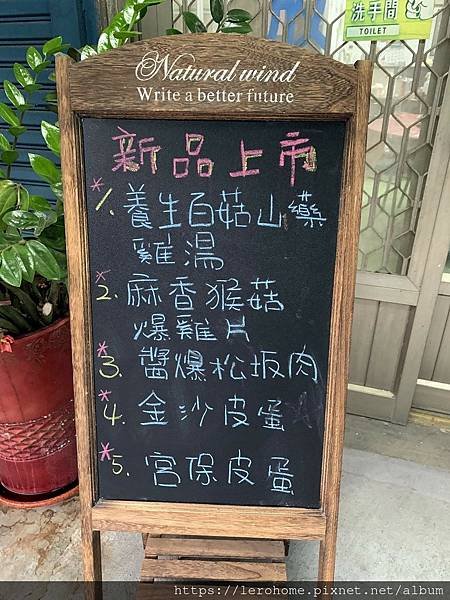 洗手間
TOILET
Natural wind
Write a better future
新品上市
*1. 養生百菇山藥
雞湯
*2. 麻香猴菇
爆雞片
*3. 醬爆松坂肉
*4. 金沙皮蛋
*5. 宮保皮蛋
https://lerohome.pixnet.net/album